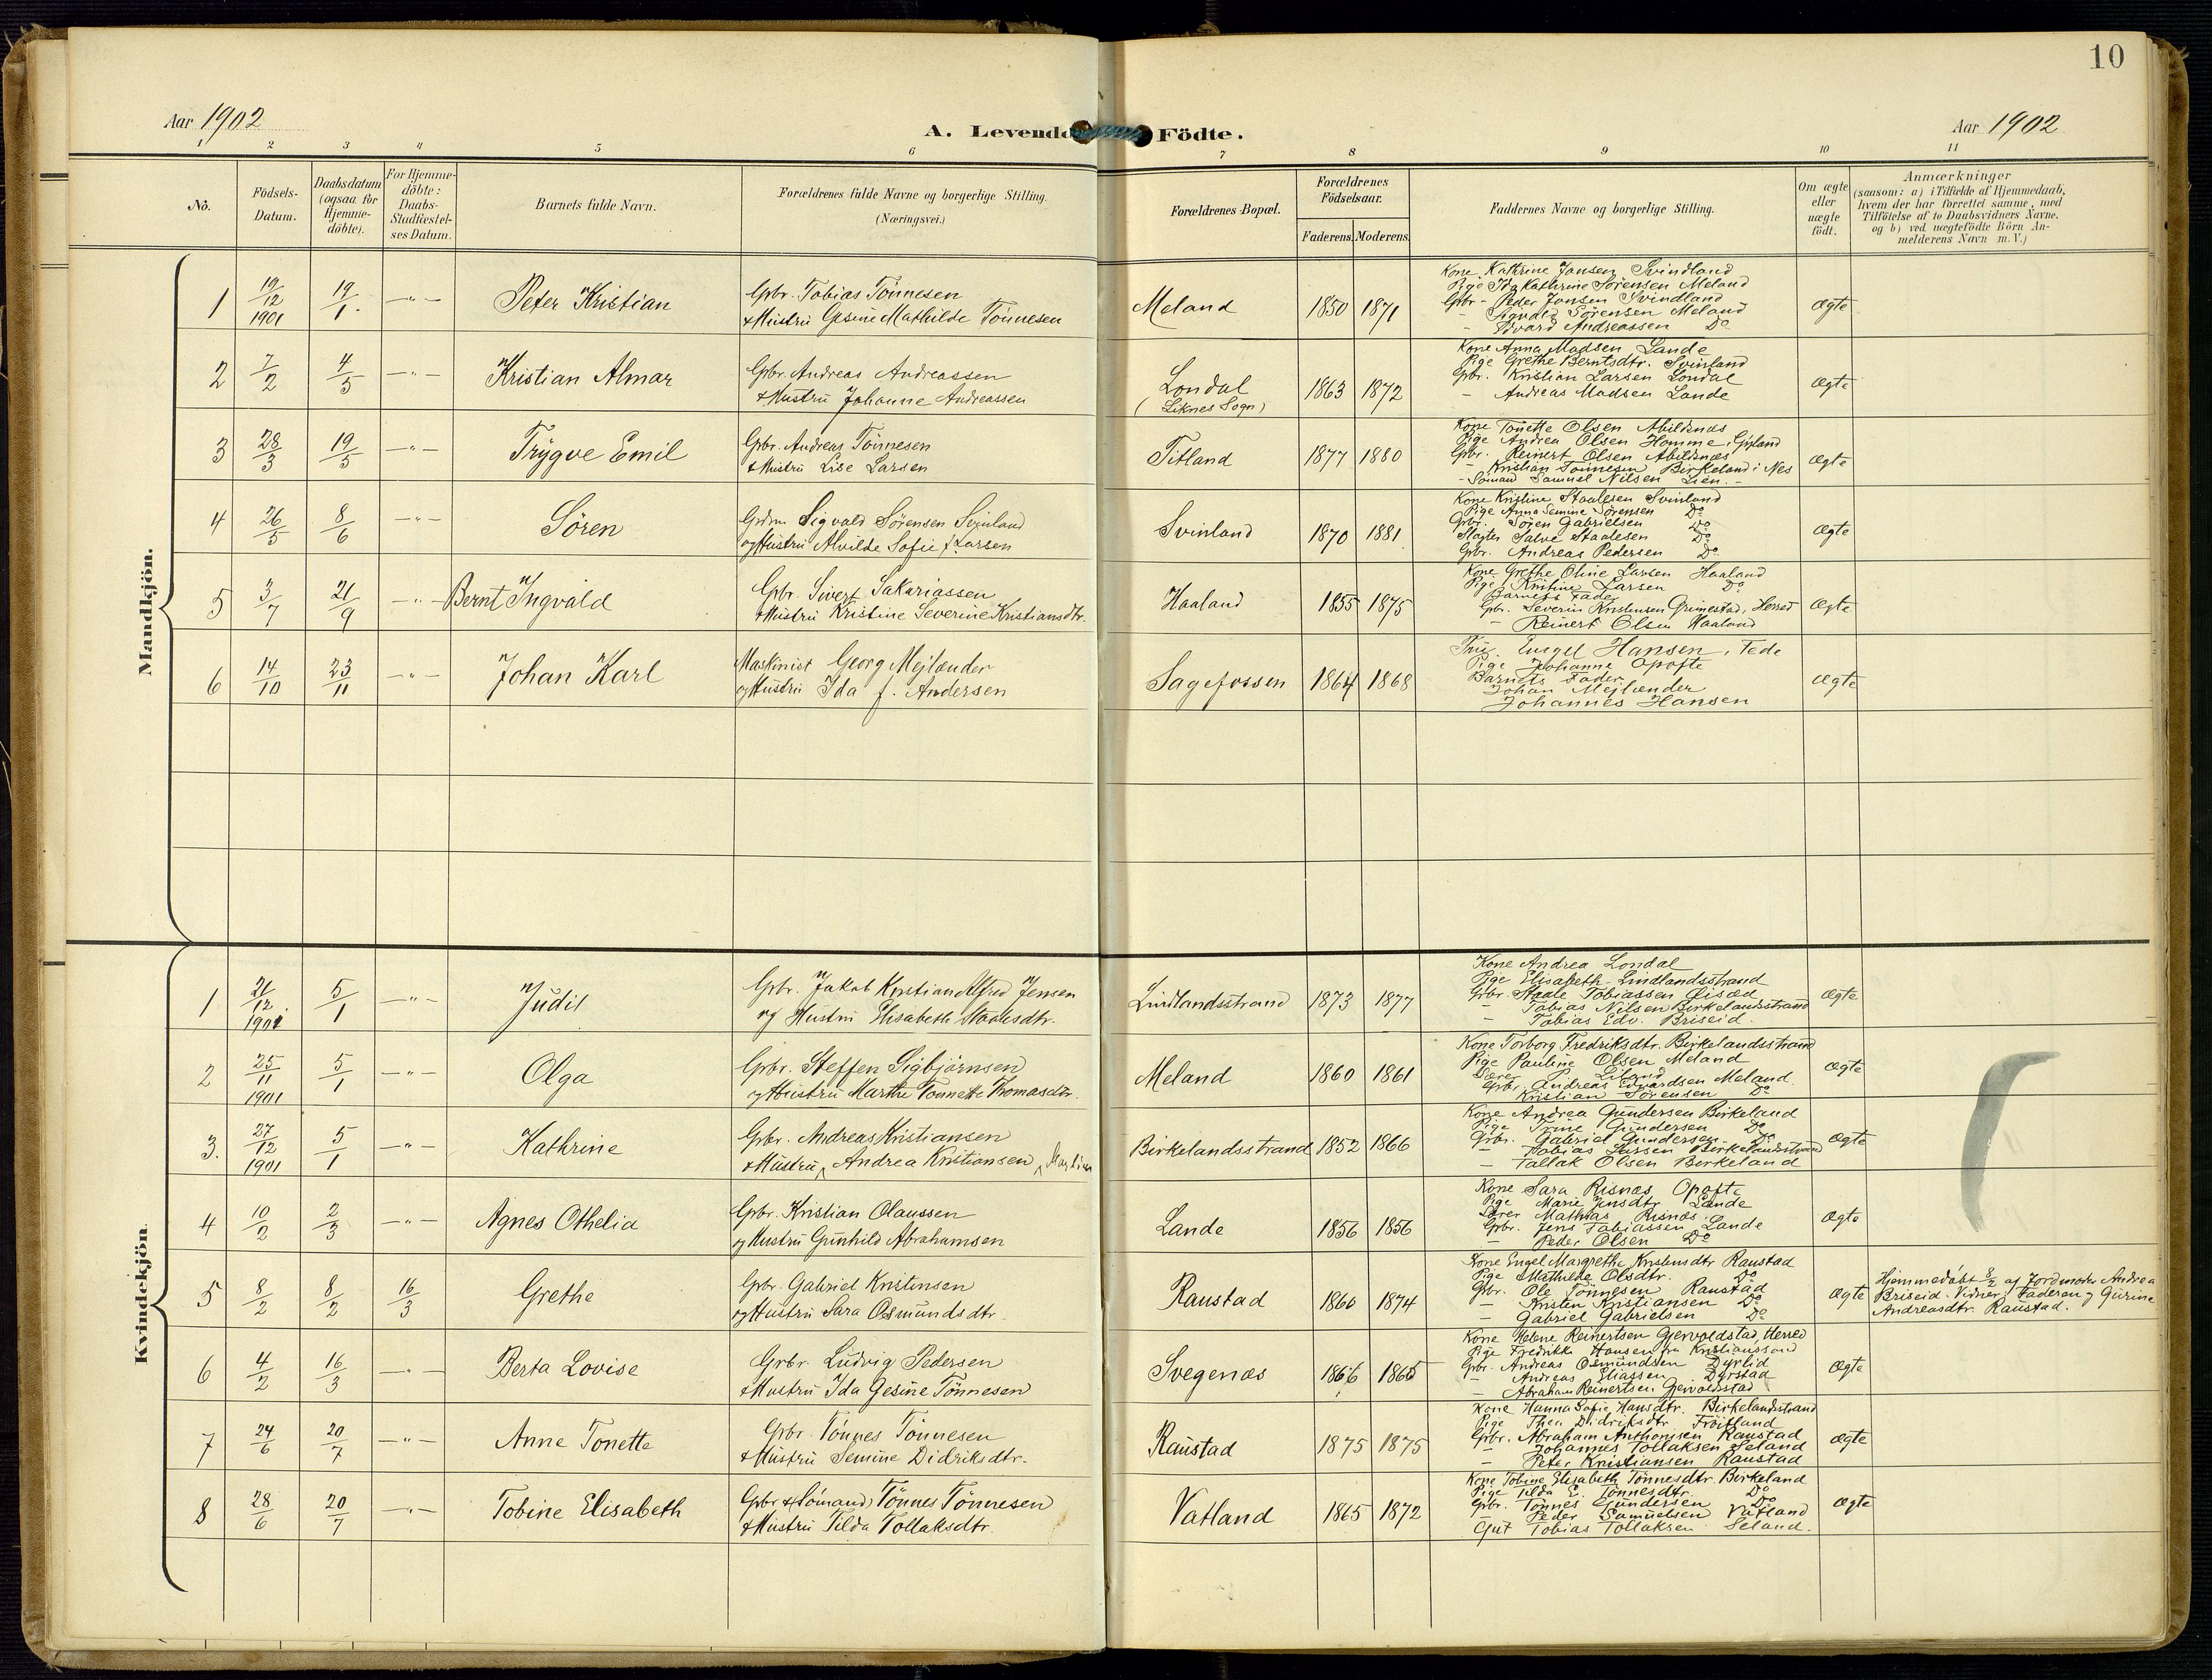 10
Aar 1902
A. Levende Födte.
Aar 1902
1 2 3 4 5 6 7 8 9 10 11
No.
Födsels-Datum.
Daabsdatum (ogsaa for Hjemme-döbte).
For Hjemme-döbte: Daabs-Stadfæstel-ses Datum.
Barnets fulde Navn.
Forældrenes fulde Navne og borgerlige Stilling.
(Næringsvei.)
Forældrenes Bopæl.
Forældrenes Födselsaar.
Faderens. Moderens.
Faddernes Navne og borgerlige Stilling.
Om ægte eller uægte födt.
Anmærkninger
(saasom: a) i Tilfælde af Hjemmedaab,
hvem der har forrettet samme, med
Tilföielse af to Daabsvidners Navne,
og b) ved uægtefödte Börn An-
melderens Navn m. V.)
Mandkjön.
1 19/12 1901 19/1. -"- Peter Kristian
Gbr. Tobias Tönnesen
& Hustru Gesine Mathilde Tönnesen
Meland 1850 1871
Kone Kathrine Jansen Svindland
Pige Ida Kathrine Sörensen Meland
Gbr - Peder Jansen Svindland
- Sigvald Sörensen Meland
- Edvard Andreassen Do
Ægte
2 7/2 4/5 -"- Kristian Almar
Gbr. Andreas Andreassen
& Hustru Johanne Andreassen
Londal
(Liknes Sogn)
1863 1872
Kone Anna Madsen Lande
Pige Grethe Berntsdtr. Svinland
Gbr. Kristian Larsen Londal
- Andreas Madsen Lande
Ægte
3 28/3 19/5 -"- Trygve Emil
Gbr. Andreas Tönnesen
& Hustru Lise Larsen
Titland 1877 1880
Kone Tonette Olsen Abildsnæs
Pige Andrea Olsen Homme, Gyland
Gbr. Reinert Olsen Abildsnæs
- Kristian Tönnesen Birkeland i Nes
- Sömand Samuel Nilsen Lien. -
Ægte
4 26/5 8/6 -"- Sören
Grdm. Sigvald Sörensen Svinland
og Hustru Alvilde Sofie f. Larsen
Svinland 1870 1881
Kone Kristine Staalesen Svinland
Pige Anna Semine Sörensen Do
Gbr. Sören Gabrielsen Do
Slagter Salve Staalesen Do
Gbr. Andreas Pedersen Do
Ægte
5 3/7 21/9 -"- Bernt Ingvald
Gbr. Sivert Sakariassen
& Hustru Kristine Severine Kristiansdtr.
Haaland 1855 1875
Kone Grethe Oline Larsen Haaland
Pige Kristine Larsen Do
Barnets Fader
Gbr. Severin Kristensen Grimestad, Herred
- Reinert Olsen Haaland
Ægte
6 14/10 23/11 -"- Johan Karl
Maskinist Georg Mejlænder
og Hustru Ida f. Andersen
Sagefossen 1864 1868
Engel Hansen, Fede
Pige Johanne Opofte
Barnets Fader
Johan Mejlænder
Johannes Hansen
Ægte
Kvindekjön
1 21/12 1901 5/1 -"- Judit
Gbr. Jakob Kristian Alfred Jensen
og Hustru Elisabeth Staalesdtr.
Lindlandsstrand 1873 1877
Kone Andrea Londal
Pige Elisabeth Lindlandsstrand
Gbr. Staale Tobiassen Öisæd
- Tobias Nilsen Birkelandsstrand
- Tobias Edv. Briseid.
Ægte
2 25/11 1901 5/1 -"- Olga
Gbr. Steffen Sigbjörnsen
og Hustru Marthe Tonnette Thomasdtr.
Meland 1860 1861
Kone Torborg Fredriksdtr. Birkelandsstrand
Pige Pauline Olsen Meland
Lærer P. Liland
Gbr. Andreas Edvardsen Meland.
Kristian Sörensen Do
Ægte
3. 27/12 1901 5/1 -"- Kathrine
Gbr. Andreas Kristiansen
& Hustru Andrea Kristiansen
Birkelandsstrand 1852 1866
Kone Andrea Gundersen Birkeland
Pige Trine Gundersen Do
Gbr. Gabriel Gundersen Do
- Tobias Larsen Birkelandsstrand
- Tallak Olsen Birkeland
Ægte
4 10/2 2/3 -"- Agnes Othelia
Gbr. Kristian Olaussen
og Hustru Gunhild Abrahamsen
Lande 1856 1856
Kone Sara Risnæs Opofte
Pige Marie Jensdtr Lande
Lærer Mathias Risnæs.
Gbr. Jens Tobiassen Lande
- Peder Olsen Do
Ægte
5 8/2 8/2 16/3 Grethe
Gbr. Gabriel Kristensen
og Hustru Sara Osmundsdtr.
Raustad 1860 1874
Kone Engel Margrethe Kristensdtr Raustad
Pige Mathilde Olsdtr. Do
Gbr. Ole Tönnesen Raustad
- Kristen Kristiansen Do
- Gabriel Gabrielsen Do
Ægte
Hjemmedöbt 8/2 af Jordmoder Andrea
Briseid. Vidner: Faderen og Gurine
Andreasdtr. Raustad.
6 4/2 16/3 -"- Berta Lovise
Grbr. Ludvig Pedersen
& Hustru Ida Gesine Tönnesen
Svegenæs 1866 1865
Kone Helene Reinertsen Gjervoldstad, Herred
Pige Fredrikke Hansen fra Kristianssand
Gbr. Andreas Osmundsen Dyrlid
- Andreas Eliassen Dyrstad
- Abraham Reinertsen Gjervoldsstad
Ægte
7 24/6 20/7 -"- Anne Tonette
Gbr. Tönnes Tönnesen
& Hustru Semine Didriksdtr.
Raustad 1875 1875
Kone Hanna Sofie Hansdtr. Birkelandsstrand
Pige Thea Didriksdtr Fröitland
Gbr. Abraham Anthonisen Raustad
- Johannes Tollaksen Seland
- Peter Kristiansen Raustad
Ægte
8 28/6 20/7 -"- Tobine Elisabeth
Gbr & (Sömand) Tönnes Tönnesen
& Hustru Tilda Tollaksdtr.
Vatland 1865 1872
Kone Tobine Elisabeth Tönnesdtr. Birkeland
Pige Tilda E. Tönnesdtr. Do
Gbr. Tönnes Gundersen Do
- Peder Samuelsen Vatland
Gut Tobias Tollaksen Seland.
Ægte